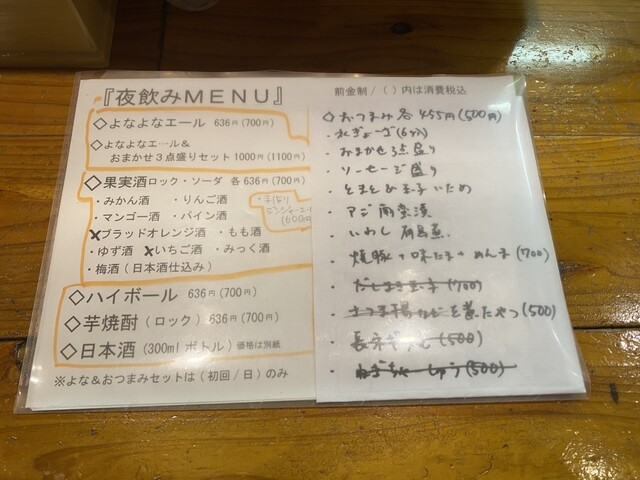 『夜飲みMENU』
◇よなよなエール 636円(700円)
◇よなよなエール&
おまかせ3点盛りセット 1000円(1100円)
◇果実酒ロック・ソーダ 各636円(700円)
・みかん酒 ・りんご酒
・マンゴー酒 ・パイン酒
・手作りジンジャーエール(600円)
✕ブラッドオレンジ酒 ・もも酒
・ゆず酒 ✕いちご酒 ・みっく酒
・梅酒(日本酒仕込み)
◇ハイボール 636円(700円)
◇芋焼酎(ロック) 636円(700円)
◇日本酒(300mlボトル) 価格は別紙
※よな&おつまみセットは(初回/日)のみ
前金制/( )内は消費税込
◇おつまみ 各455円(500円)
・水ぎょーざ(6つ)
・おまかせ3点盛り
・ソーセージ盛り
・とまと&玉子いため
・アジ南蛮漬
・いわし 有馬煮
・焼豚+味たま+めんま(700)
・だしまき玉子(700)
・さつま揚などを煮たやつ(500)
・(500)
・ねぎちゃーしゅう(500)